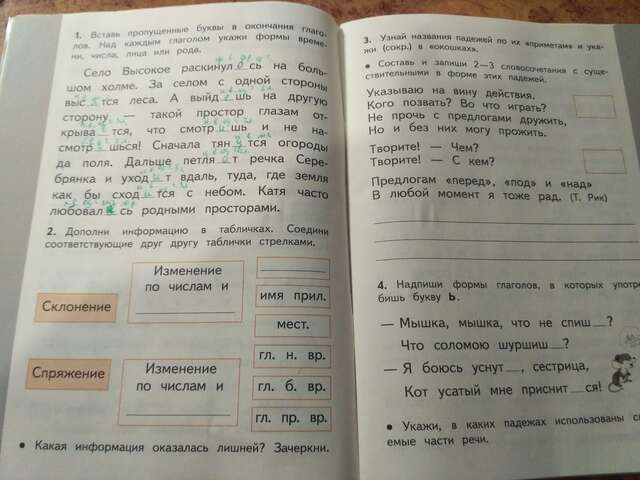 1. Вставь пропущенные буквы в окончания глаго-
лов. Над каждым глаголом укажи формы време-
ни, числа, лица или рода.
Село Высокое раскинул о сь на боль-
шом холме. За селом с одной стороны
выс тся леса. А выйд е шь на другую
сторону — такой простор глазам от-
крыва е тся, что смотр и шь и не на-
смотр и шься! Сначала тян у тся огороды
да поля. Дальше петля е т речка Сере-
брянка и уход и т вдаль, туда, где земля
как бы сход и тся с небом. Катя часто
любовал а сь родными просторами.
2. Дополни информацию в табличках. Соедини
соответствующие друг другу таблички стрелками.
Склонение
Изменение
по числам и
Спряжение
Изменение
по числам и
имя прил.
мест.
гл. н. вр.
гл. б. вр.
гл. пр. вр.
• Какая информация оказалась лишней? Зачеркни.
3. Узнай названия падежей по их «приметам» и ука-
жи (сокр.) в «окошках».
• Составь и запиши 2—3 словосочетания с суще-
ствительными в форме этих падежей.
Указываю на вину действия.
Кого позвать? Во что играть?
Не прочь с предлогами дружить,
Но и без них могу прожить.
Творите! — Чем?
Творите! — С кем?
Предлогам «перед», «под» и «над»
В любой момент я тоже рад. (Т. Рик)
4. Надпиши формы глаголов, в которых употре
бишь букву ь.
— Мышка, мышка, что не спиш ?
Что соломою шуршиш ?
— Я боюсь уснут , сестрица,
Кот усатый мне приснит ся!
• Укажи, в каких падежах использованы
емые части речи.